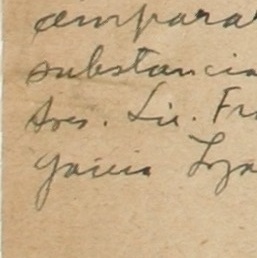 ampara
substancia
Sres. Lic. Fr
García Loza